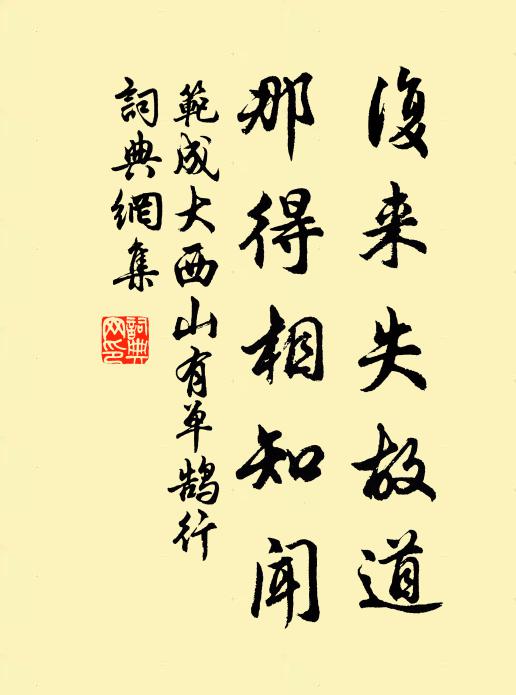 復来失故道
那得相知聞
範成大西山有单鵠行
詞典網集
詞典
网印